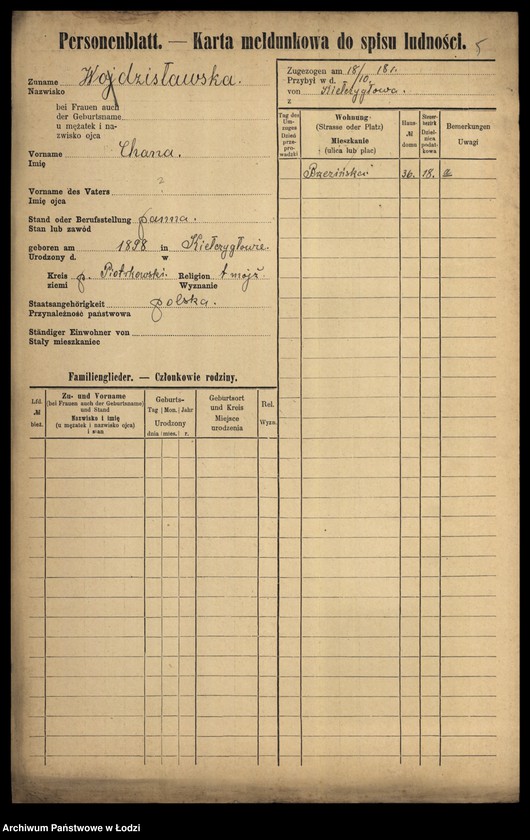 Personenblatt. — Karta meldunkowa do spisu ludności. 5
Zuname Wojdzisławska.
Nazwisko
bei Frauen auch
der Geburtsname
u mężatek i na-
zwisko ojca
Vorname Chana.
Imię
Vorname des Vaters ?
Imię ojca
Stand oder Berufsstellung panna.
Stan lub zawód
geboren am 1898 in Kiełczygłowie.
Urodzony d. w
Kreis p. Piotrkowski. Religion
ziemi Wyznanie
Staatsangehörigkeit polska.
Przynależność państwowa
Ständiger Einwohner von
Stały mieszkaniec
Familienglieder. — Członkowie rodziny.
Lfd.
№
bież.
Zu- und Vorname
(bei Frauen auch der Geburtsname)
und Stand
Nazwisko i imię
(u mężatek i nazwisko ojca)
i stan
Geburts-
Tag Mon. Jahr
Urodzony
dnia mies. r.
Geburtsort
und Kreis
Miejsce
urodzenia
Rel.
Wyzn.
Zugezogen am 18/10. 18 r.
Przybył w d.
von Kiełczygłowa.
z
Tag des
Um-
zuges
Dzień
prze-
prowadzki
Wohnung
(Strasse oder Platz)
Mieszkanie
(ulica lub plac)
Haus-
№
domu
Steuer-
bezirk
Dziel-
nica
podat-
kowa
Bemerkungen
Uwagi
Brzezińska 36. 18.
Archiwum Państwowe w Łodzi